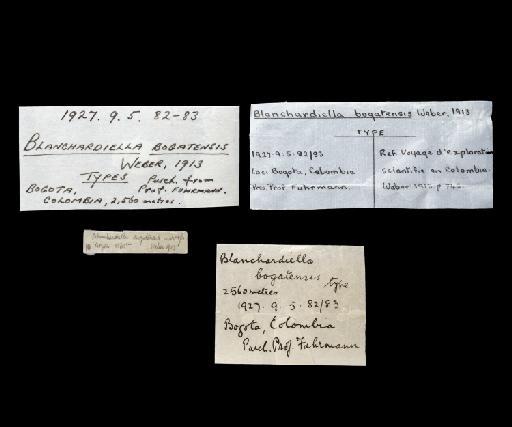 1927. 9. 5. 82-83
BLANCHARDIELLA BOGATENSIS
WEBER, 1913
TYPES Purch. from
BOGOTA, Prof. FUHRMANN.
COLOMBIA, 2,560 metres.
Blanchardiella bogatensis Weber, 1913
TYPE
1927.9.5.82/83
Loc. Bogota, Colombia
Pres. Prof. Fuhrmann.
Ref. Voyage d'exploration
scient. en Colombie.
Weber 1913 p.
Blanchardiella
bogatensis type
2560 metres
1927. 9. 5. 82/83
Bogota, Colombia
Purch. Prof. Fuhrmann